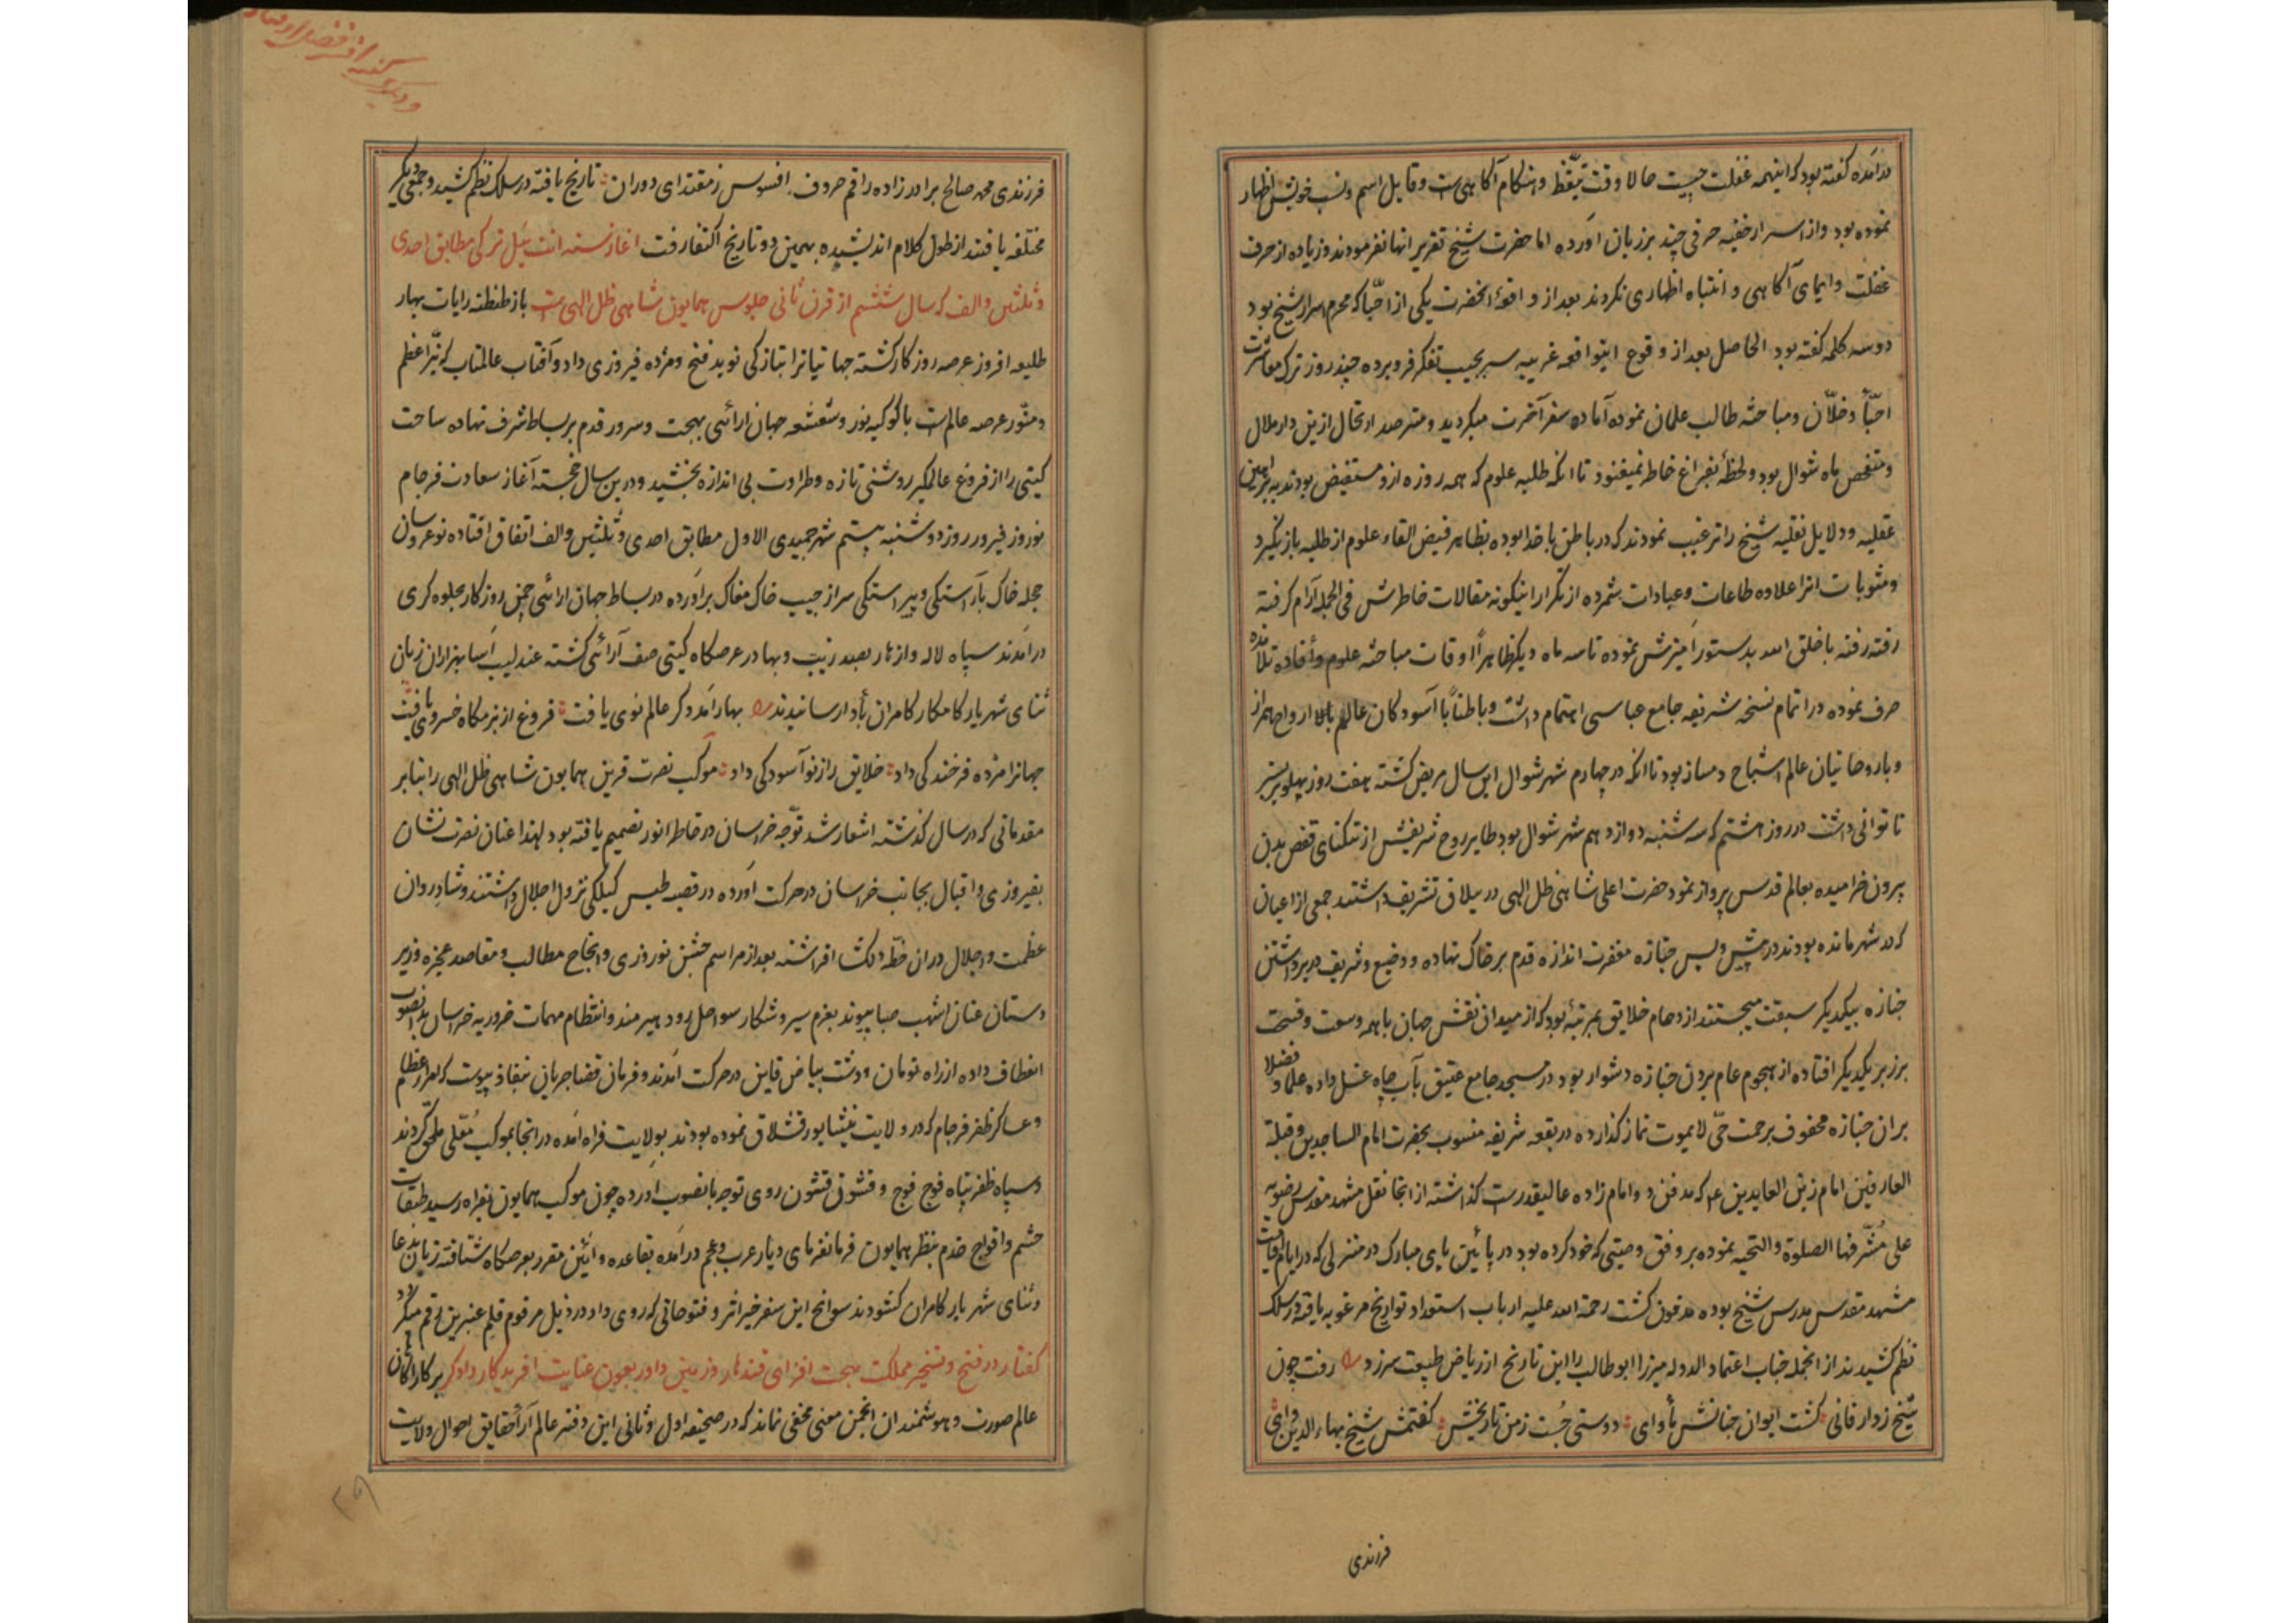 درآمده گفته بود که اینهمه غفلت چیست حالا وقت تیقظ و هنگام آگاهی است وقایل اسم ونسب خویش اظهار
نموده بود واز اسرار خفیه حرفی چند بر زبان آورده اما حضرت شیخ تقریر انها نفرمودند وزیاده از حرف
غفلت وایمای آکاهی و انتباه اظهاری نکردند بعد از واقعۀ انحضرت یکی از احبّا که محرم اسرار شیخ بود
دو سه کلمه گفته بود الحاصل بعد از وقوع اینواقعه غریبه سر بجیب تفکر فرو برده چند روز ترک معاشرت
احبّأ وخلّان ومباحثه طالب علمان نموده آماده سفر آخرت میکردید ومترصد ارتحال ازین دار ملال
ومتفحص ماه شوال بود ولحظۀ بفراغ خاطر نمیغنود تا انکه طلبه علوم که همه روزه ازو مستفیض بودند ببراهین
عقلیه ودلایل نقلیه شیخ را ترغیب نمودند که در باطن با خدا بوده بظاهر فیض القاء علوم از طلبه باز نگیرد
ومثوبات انرا علاوه طاعات وعبادات شمرده از تکرار اینکونه مقالات خاطرش فی الجمله آرام کرفته
رفته رفته با خلق الله بدستور آمیزش نموده تا سه ماه دیکر ظاهراً اوقات مباحثه علوم وأفاده تلامذه
صرف نموده در اتمام نسخه شریفه جامع عباسی اهتمام داشت وباطناً با آسودکان عالم بالا از ارواح همراز
وبا روحانیان عالم اشباح دمساز بود تا انکه در چهارم شهر شوال این سال مریض کشته هفت روز پهلو بر بستر
ناتوانی داشت در روز هشتم که سه شنبه دوازدهم شهر شوال بود طایر روح شریفش از تنکنای قفص بدن
بیرون خرامیده بعالم قدس پرواز نمود حضرت اعلی شاهی ظل الهی در ییلاق تشریف داشتند جمعی از اعیان
که در شهر مانده بودند در پیش وپس جنازه مغفرت اندازه قدم بر خاک نهاده ووضیع وشریف در برداشتن
جنازه بیکدیکر سبقت میجستند ازدهام خلایق بمرتبۀ بود که از میدان نقش جهان با همه وسعت وفسحت
برزبر یکدیکر افتاده از هجوم عام بردن جنازه دشوار بود در مسجد جامع عتیق بآب چاه غسل داده علما و فضلا
بران جنازه محفوف برحمت حیّ لا یموت نماز کذارده در بقعه شریفه منسوب بحضرت امام الساجدین وقبلة
العارفین امام زین العابدین ع م که مدفن دو امام زاده عالیقدرست کذاشته از انجا نقل مشهد مقدس رضویه
علی مشرفها الصلوة والتحیه نموده بر وفق وصیتی که خود کرده بود در پائین پای مبارک در منزلی که در ایام اقامت
مشهد مقدس مدرس شیخ بوده مدفون کشت رحمة الله علیه ارباب استعداد تواریخ مرغوبه یافته در سلک
نظم کشیدند از انجمله جناب اعتماد الدوله میرزا ابو طالب را این تاریخ از ریاض طبیعت سرزد رفت چون
شیخ زدار فانی کشت ایوان جنانش مأوای دوستی جُست زمن تاریخش کفتمش شیخ بهاء الدین وای
فرزندی
فرزندی محمد صالح برادر زاده راقم حروف افسوس زمقتدای دوران تاریخ یافته در سلک نظم کشید وجمعی دیکر
مختلفه یافتند از طول کلام اندیشیده بهمین دو تاریخ اکتفا رفت اغاز سنه ایت ئیل ترکی مطابق احدی
وثلثین والف که سال ششم از قرن ثانی جلوس همایون شاهی ظل الهی است باز طنطنه رایات بهار
طلیعه افروز عرصه روزکار کشته جهانیانرا بتازکی نوید فتح ومژده فیروزی داد وآفتاب عالمتاب که نیّر اعظم
ومنّور عرصه عالم است با کوکبه نور وشعشعه جهان ارائی بهجت وسرور قدم بر بساط شرف نهاده ساحت
کیتی را از فروغ عالمکیر روشنی تازه وطراوت بی اندازه بخشید ودرین سال خجسته آغاز سعادت فرجام
نوروز فیروز روز دوشنبه بیستم شهر جمیدی الاول مطابق احدی وثلثین والف اتفاق افتاده نو عروسان
حجله خاک بآراستکی وپیراستکی سر از جیب خاک مغاک برآورده در بساط جهان ارائی چمن روزکار بجلوه کری
درآمدند سپاه لاله وازهار بصد زیب وبها در عرصکاه کیتی صف آرائی کشته عندلیب آسا بهزاران زبان
ثنای شهریار کامکار کامران بأدا رسانیدند بهار آمد وکر عالم نوی یافت فروغ از بزمکاه خسروی یافت
جهانرا مژده فرخندکی داد خلایق را ز نو آسودکی داد موکب نصرت قرین همایون شاهی ظل الهی را بنابر
مقدماتی که در سال کذشته اشعار شد توجّه خراسان در خاطر انور تصمیم یافته بود لهذا عنان نصرت نشان
بفیروزی واقبال بجانب خراسان در حرکت آورده در قصبه طبس کیلکی نزول اجلال داشتند وشادروان
عظمت واجلال دران خطّه دلکشا افراشته بعد از مراسم جشن نوروزی وانجاح مطالب ومقاصد عجزه وزیر
دستان عنان اشهب صبا پیوند بعزم سیر وشکار سواحل رود هیرمند وانتظام مهمات ضروریه خراسان بدانصوب
انعطاف داده از راه تومان ودشت بیاض قاین در حرکت آمدند وفرمان قضا جریان بنفاذ پیوست که امراء عظام
وعساکر ظفر فرجام که در ولایت نیشابور قشلاق نموده بودند بولایت فراه آمده در انجا بموکب مُعَلی ملحق کردند
وسپاه ظفر پناه فوج فوج وقشون قشون روی توجه بانصوب آورده چون موکب همایون بفراه رسید طبقات
حشم وافواج خدم بنظر همایون فرمانفرمای دیار عرب وعجم درآمده بقاعده وآئین مقرر بعرصکاه شتافته زبان بدعا
وثنای شهریار کامران کشودند سوانح این سفر خیر اثر وفتوحاتی که روی داد در ذیل مرقوم قلم عنبرین رقم میکردد
کفتار در فتح وتسخیر مملکت بهجت افزای قندهار وزمین داور بعون عنایت افریدکار داوکر بر کار اکاهان
عالم صورت وهوشمندان انجمن معنی مخفی نماند که در صحیفه اول وثانی این دفتر عالم آرا حقایق احوال ولایت